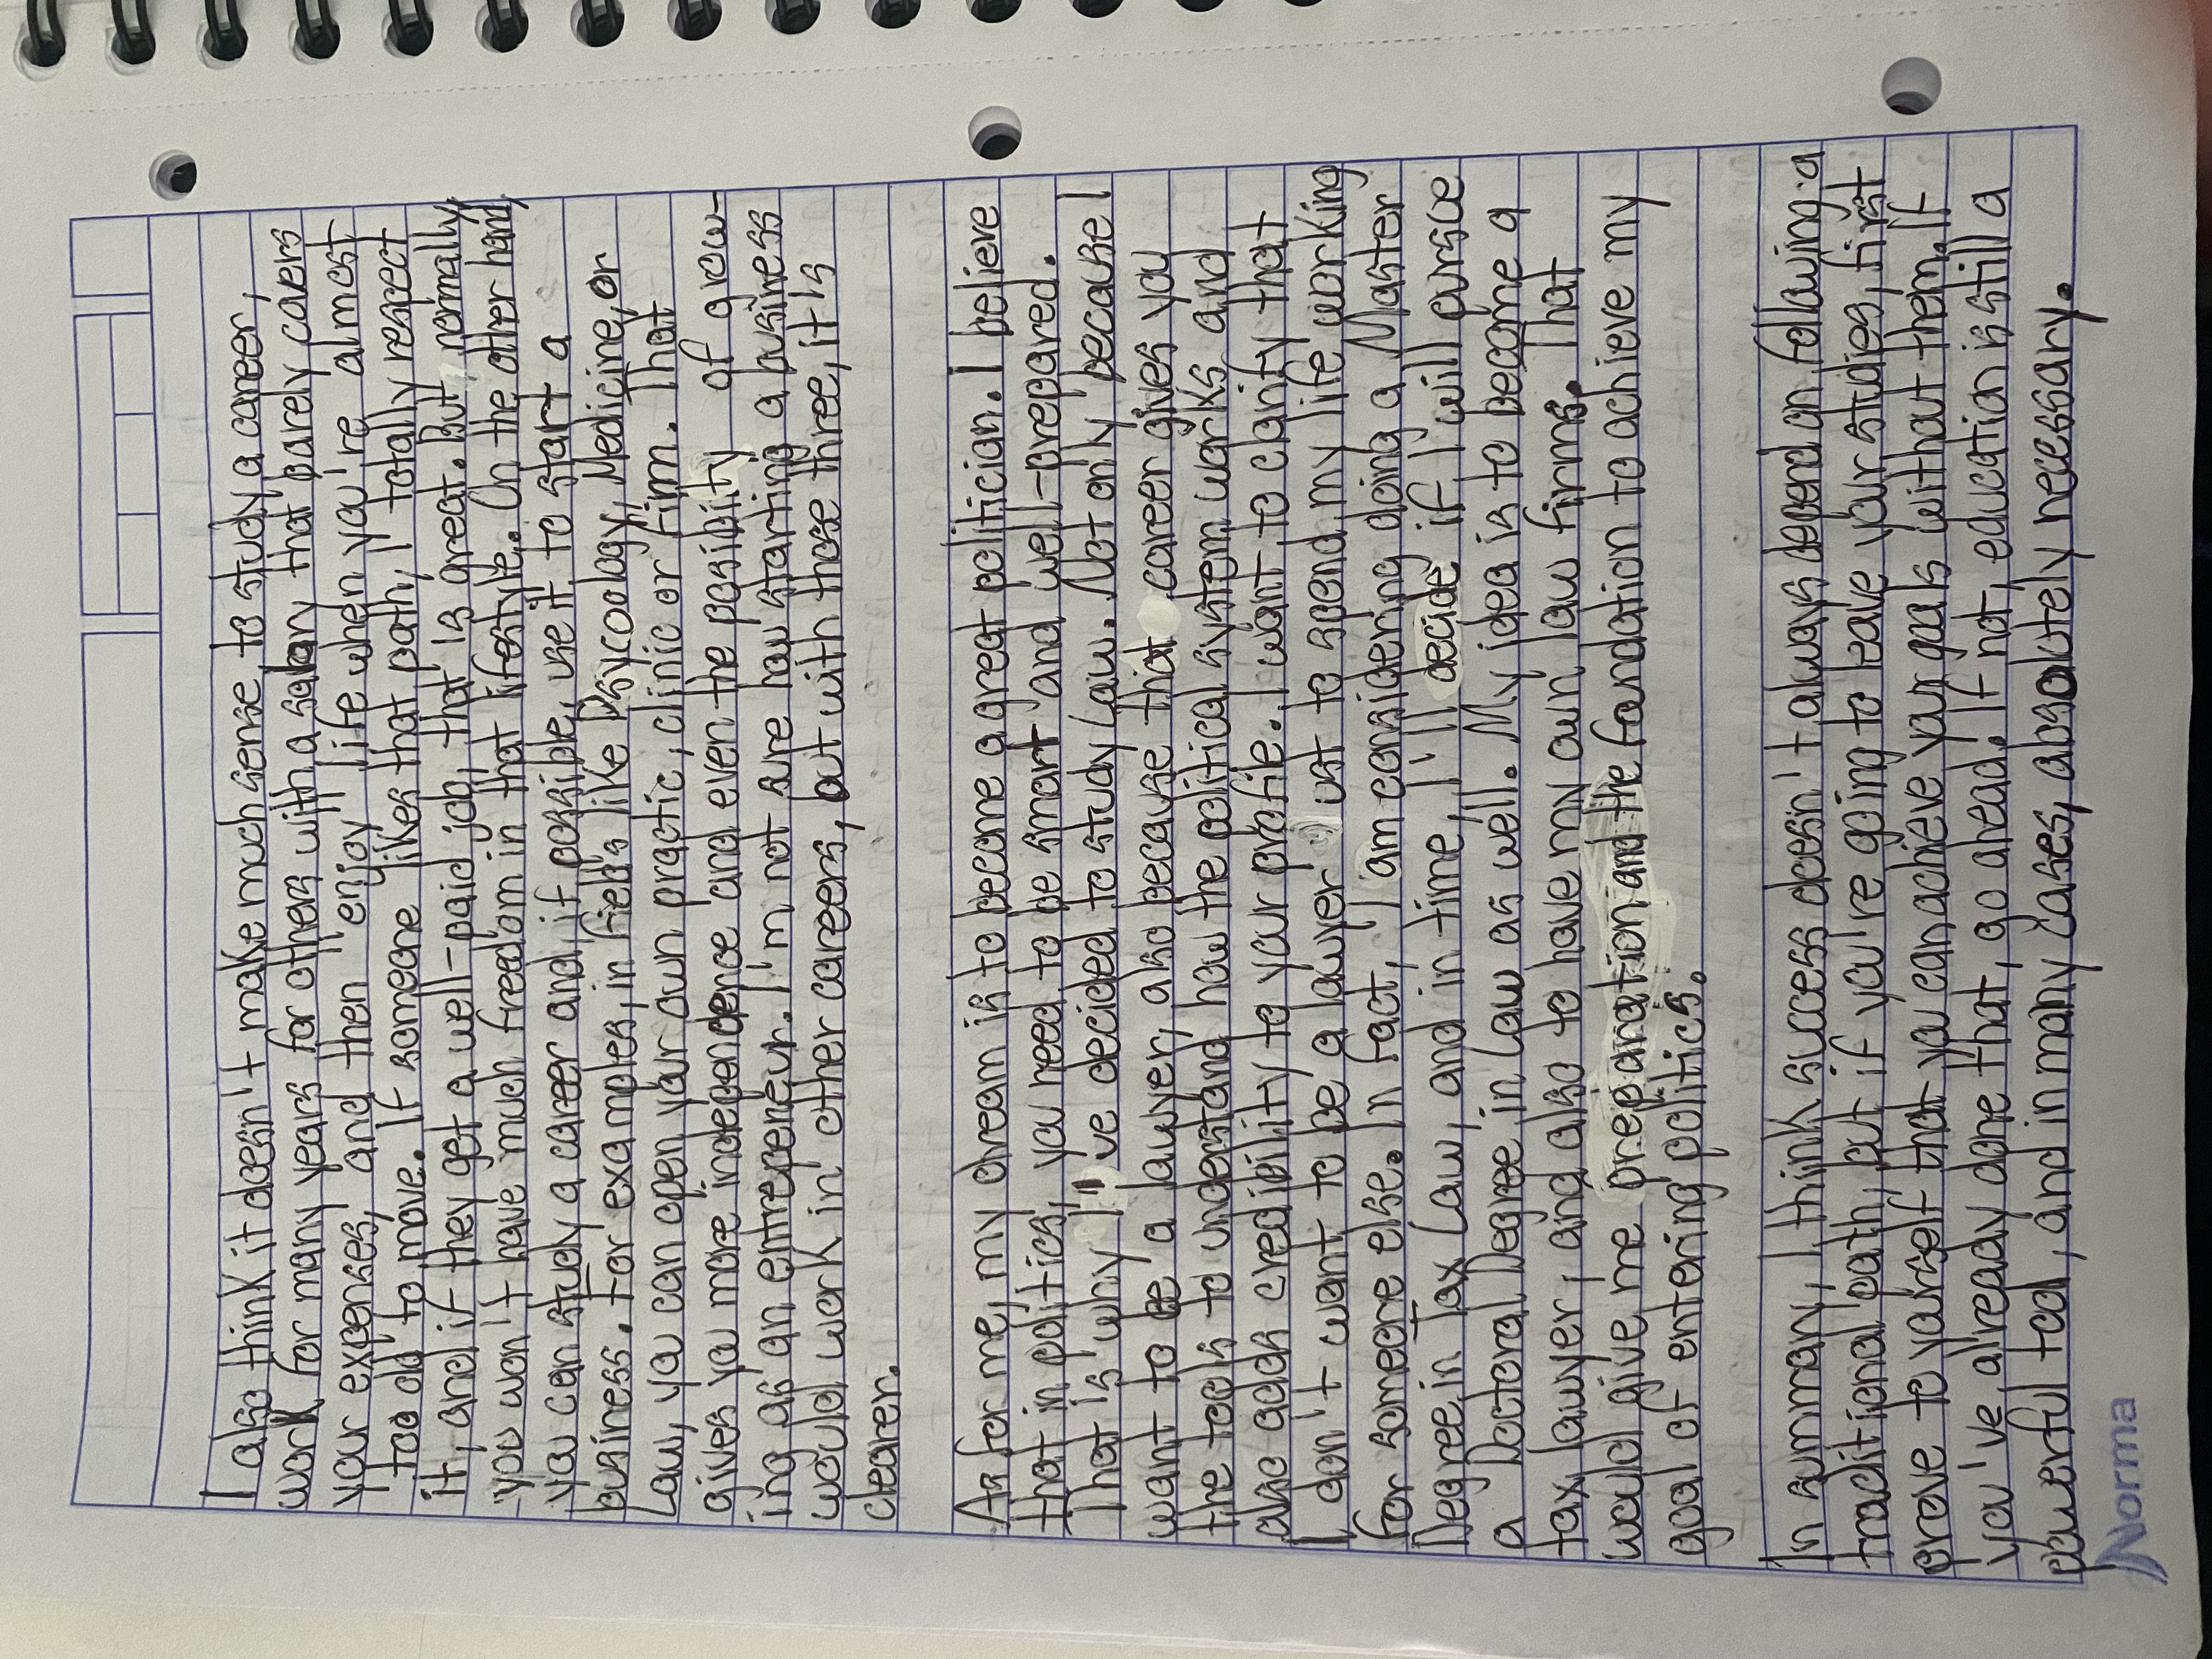 I also think it doesn't make much sense to study a career,
work for many years for others with a salary that barely covers
your expenses, and then "enjoy" life when you're almost
too old to move. If someone likes that path, I totally respect
it, and if they get a well-paid job, that is great. But, normally,
you won't have much freedom in that lifestyle. On the other hand,
you can study a career and, if possible, use it to start a
business. For examples, in fields like Psycology, Medicine, or
Law, you can open your own practic, clinic or firm. That
gives you more independence and even the posibility of grow-
ing as an entrepeneur. I'm not sure how starting a business
would work in other careers, but with those three, it is
clearer.
As for me, my dream is to become a great politician. I believe
that in politics, you need to be smart and well-prepared.
That is why I've decided to study Law. Not only because I
want to be a lawyer, also because that career gives you
the tools to understand how the political system works and
also adds credibility to your profile. I want to clarify that
I don't want to be a lawyer just to spend my life working
for someone else. In fact, I am considering doing a Master
Degree in Tax Law, and in time, I'll decide if I will pursue
a Doctoral Degree in Law as well. My idea is to become a
tax lawyer, and also to have my own law firms. That
would give me preparation and the fondation to achieve my
goal of entering politics.
In summary, I think success doesn't always depend on following a
traditional path, but if you're going to leave your studies, first
prove to yourself that you can achieve your goals without them. If
you've already done that, go ahead. If not, education is still a
powerful tool, and in many cases, absolutely necessary.
Norma